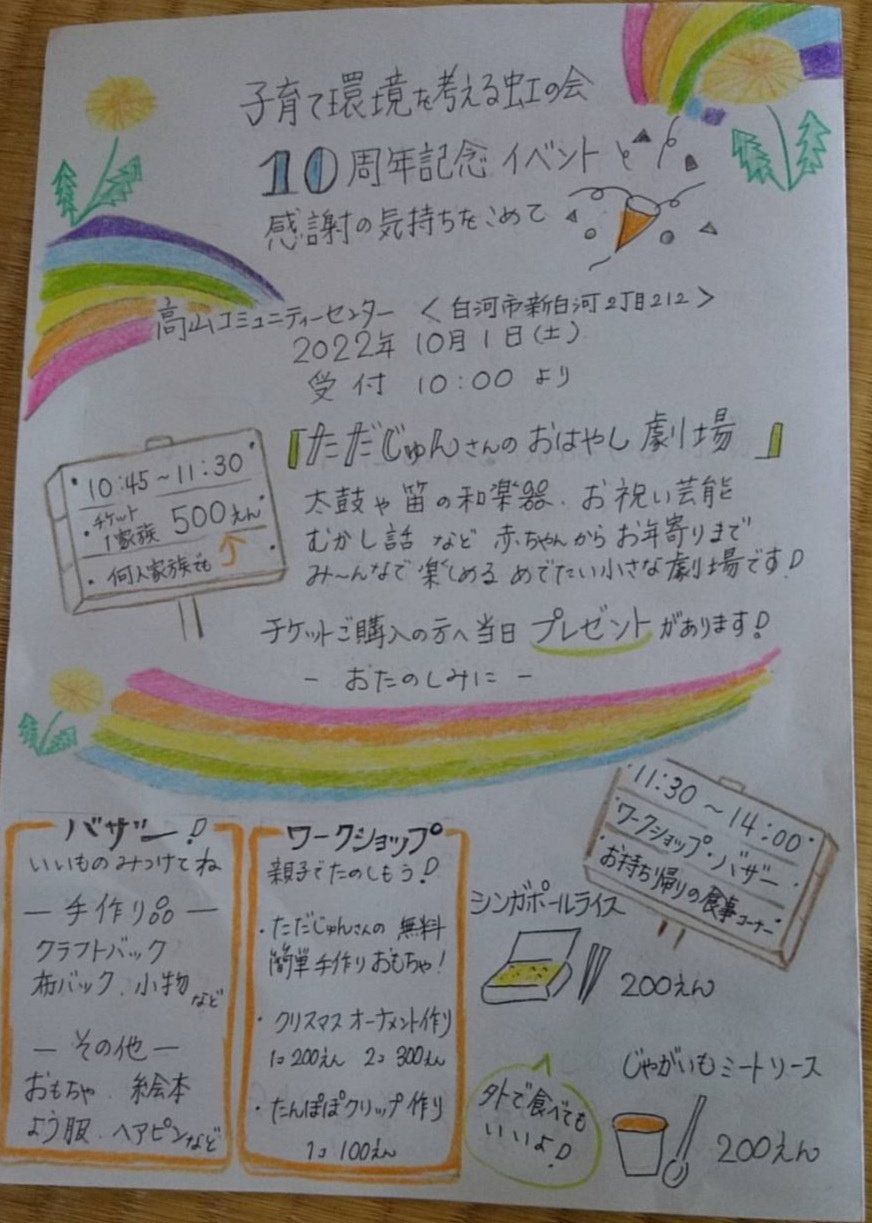 子育て環境を考える虹の会
10周年記念イベント
感謝の気持ちをこめて
高山コミュニティーセンター <白河市新白河2丁目212>
2022年 10月1日(土)
受付 10:00 より
10:45~11:30
・チケット 1家族 500えん
・何人家族でも
『ただじゅんさんの おはやし劇場』
太鼓や笛の和楽器、お祝い芸能
むかし話 など 赤ちゃんから お年寄りまで
み~んなで楽しめる めでたい小さな劇場です!
チケットご購入の方へ当日 プレゼントがあります!
- おたのしみに -
11:30~14:00
ワークショップ・バザー
お持ち帰りの食事コーナー
バザー!
いいものみつけてね
― 手作り品 ―
クラフトバック
布バック、小物など
― その他 ―
おもちゃ、絵本
よう服、ヘアピンなど
ワークショップ
親子でたのしもう!
・ただじゅんさんの 無料
簡単手作りおもちゃ!
・クリスマスオーナメント作り
1コ200えん 2コ300えん
・たんぽぽクリップ作り
1コ100えん
シンガポールライス
200えん
じゃがいもミートソース
200えん
外で食べても
いいよ!